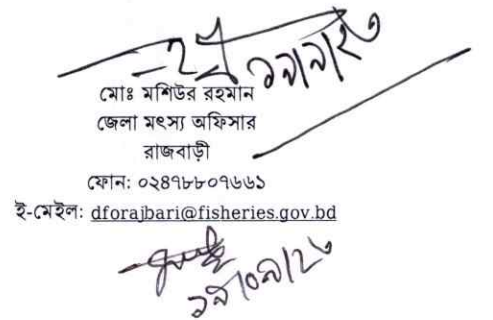 মোঃ মশিউর রহমান
জেলা মৎস্য অফিসার
রাজবাড়ী
ফোন: ০২৪৭৮৮০৭৬৬১
ই-মেইল: dforajbari@fisheries.gov.bd